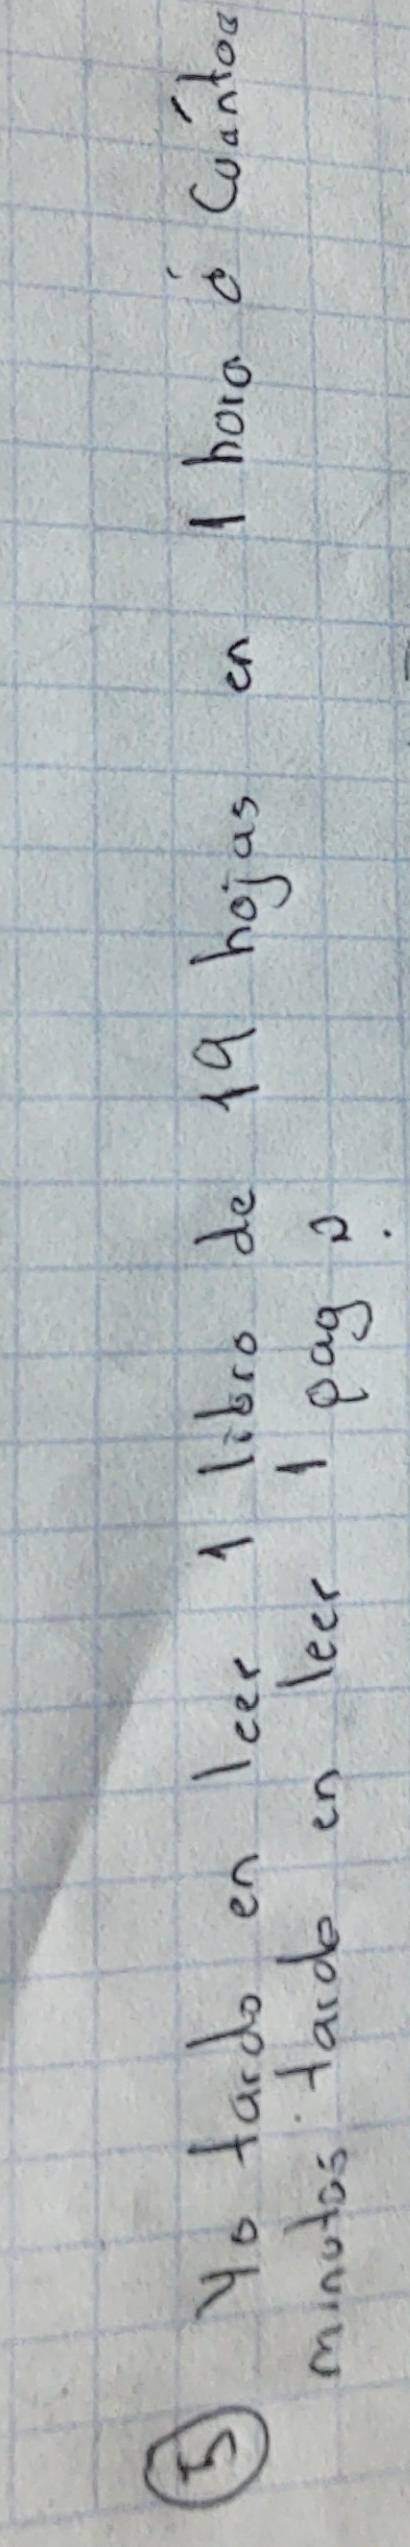 5 Yo tardo en leer 1 libro de 19 hojas en 1 hora ó Cuántos
minutos tardo en leer 1 pag?